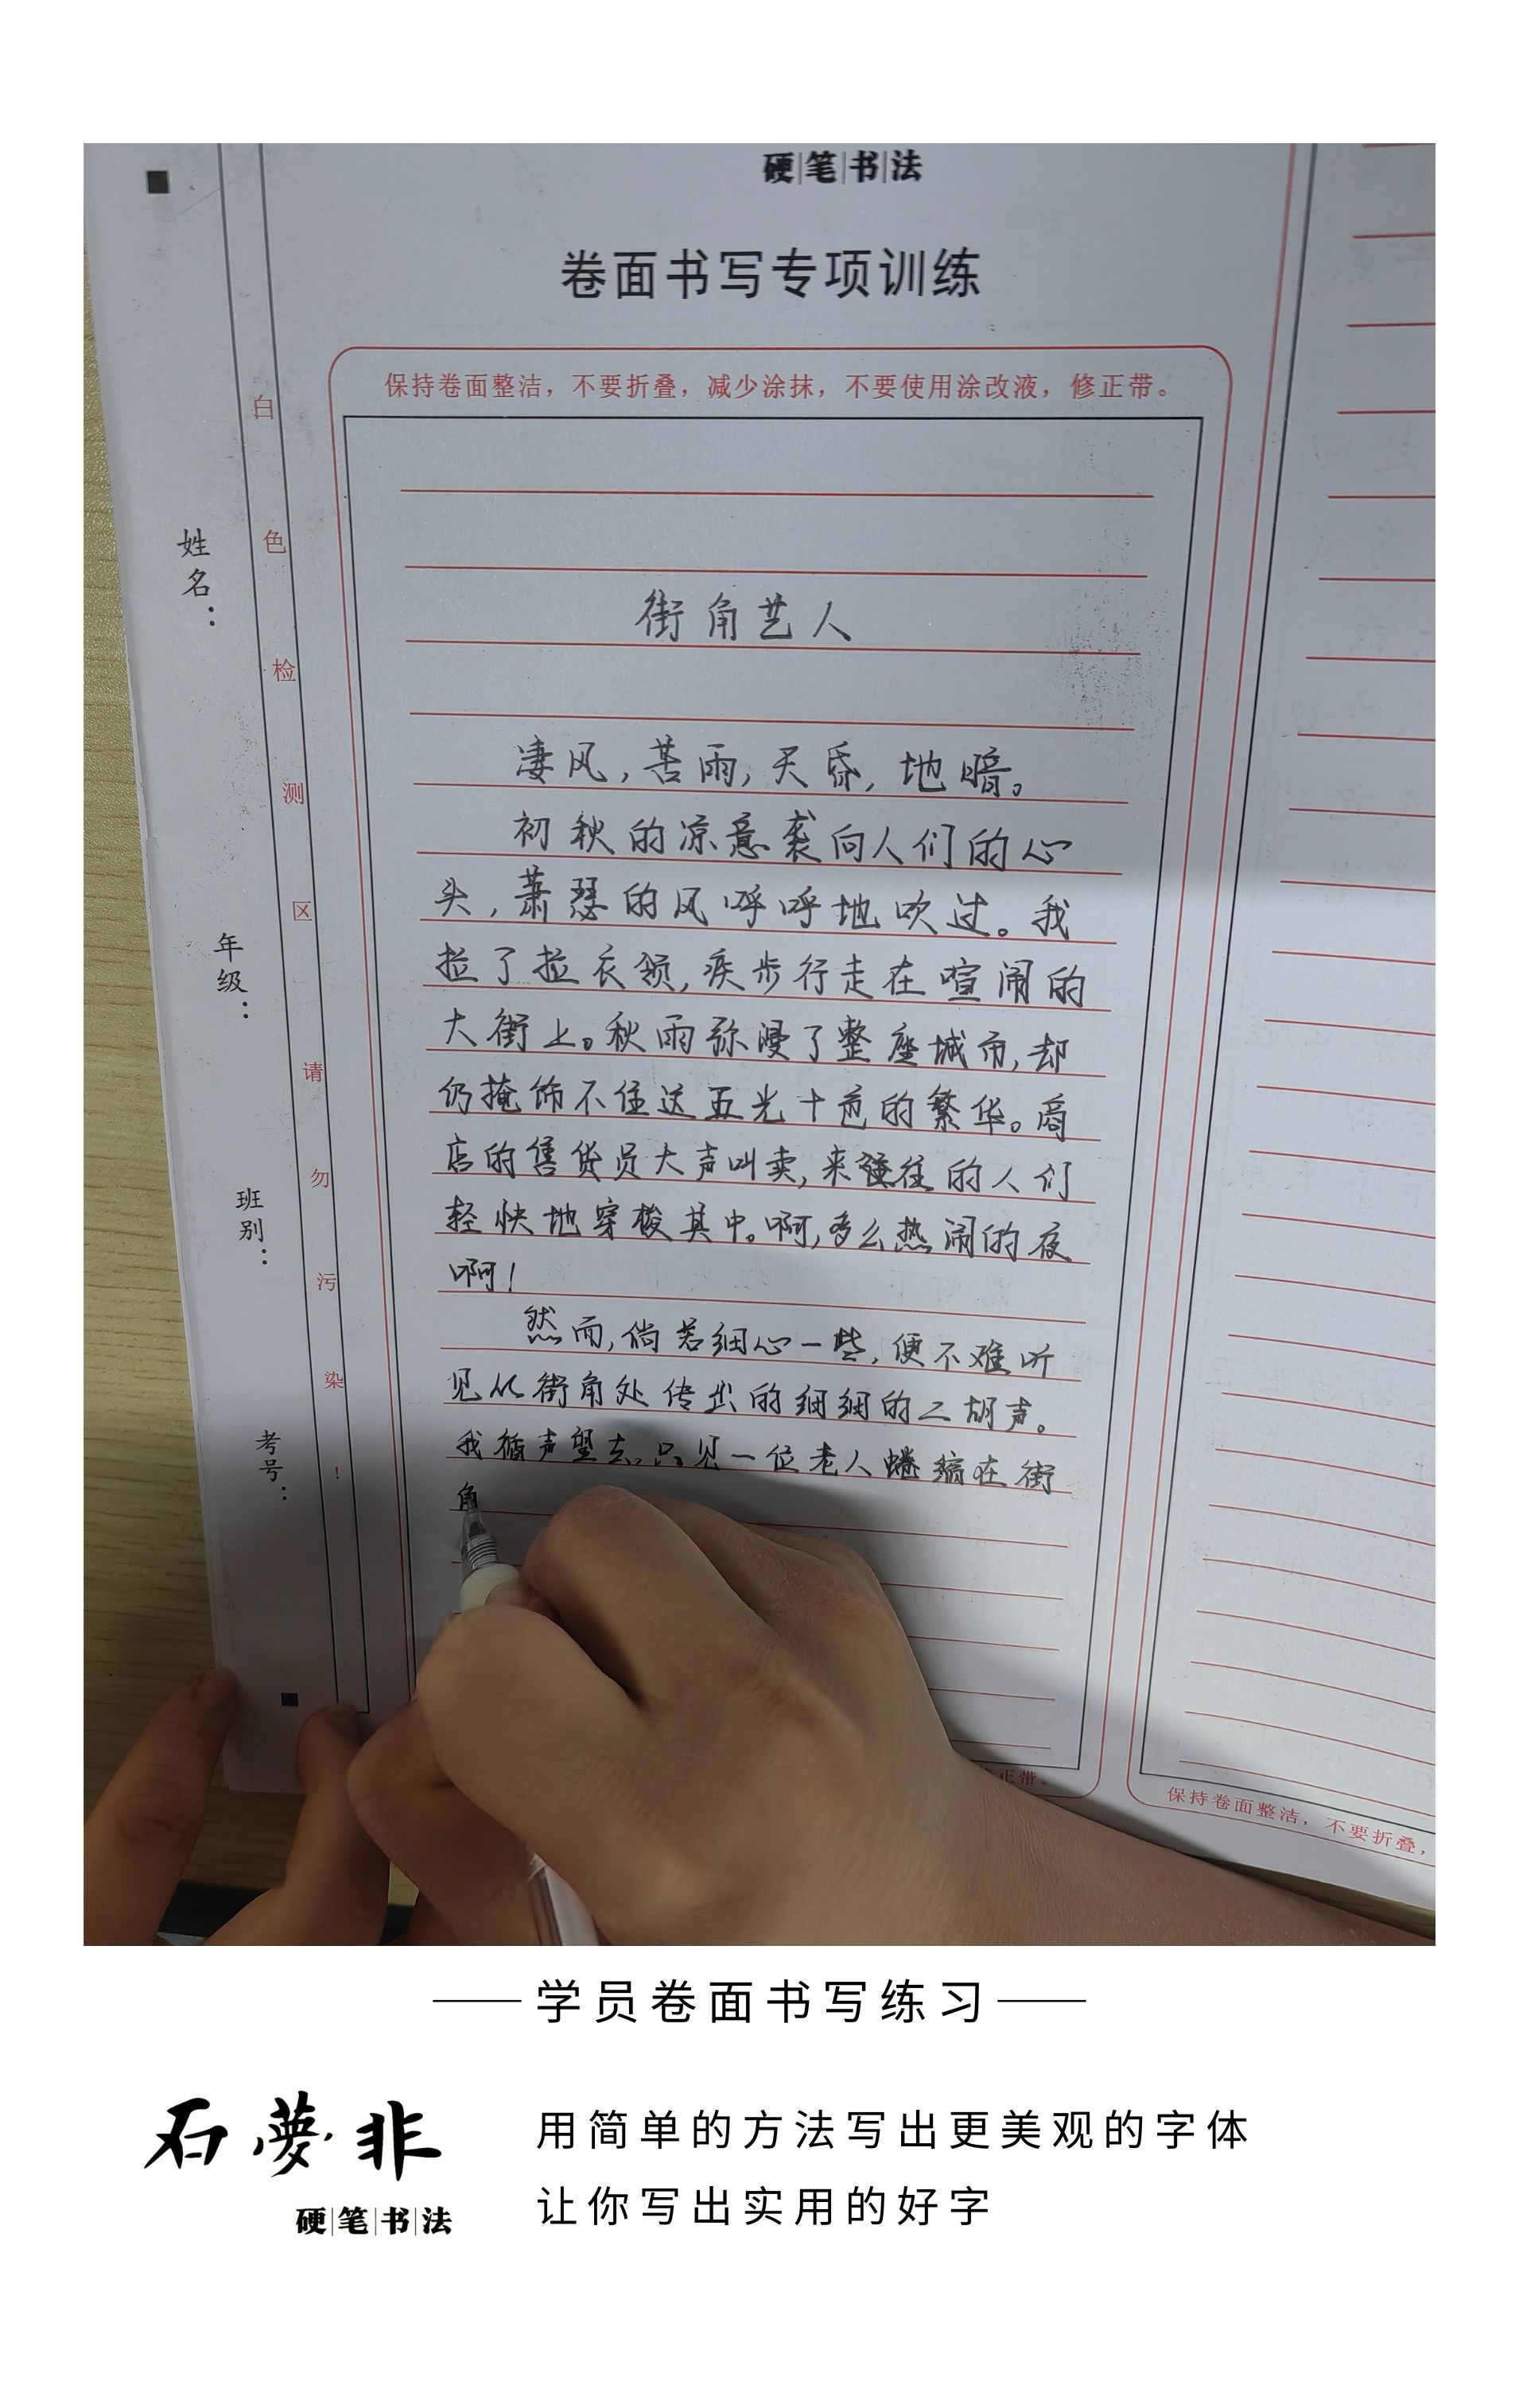 硬笔书法
卷面书写专项训练
保持卷面整洁，不要折叠，减少涂抹，不要使用涂改液，修正带。
街角艺人
凄风，苦雨，天昏，地暗。
初秋的凉意袭向人们的心
头，萧瑟的风呼呼地吹过。我
拉了拉衣领，疾步行走在喧闹的
大街上。秋雨弥漫了整座城市，却
仍掩饰不住这五光十色的繁华。商
店的售货员大声叫卖，来往的人们
轻快地穿梭其中。啊，多么热闹的夜
啊！
然而，倘若细心一些，便不难听
见从街角处传出的细细的二胡声。
我循声望去，只见一位老人蜷缩在街
角
姓名：
年级：
班别：
考号：
白色检测区请勿污染！
正带。
保持卷面整洁，不要折叠，
学员卷面书写练习
石夢非
硬笔书法
用简单的方法写出更美观的字体
让你写出实用的好字